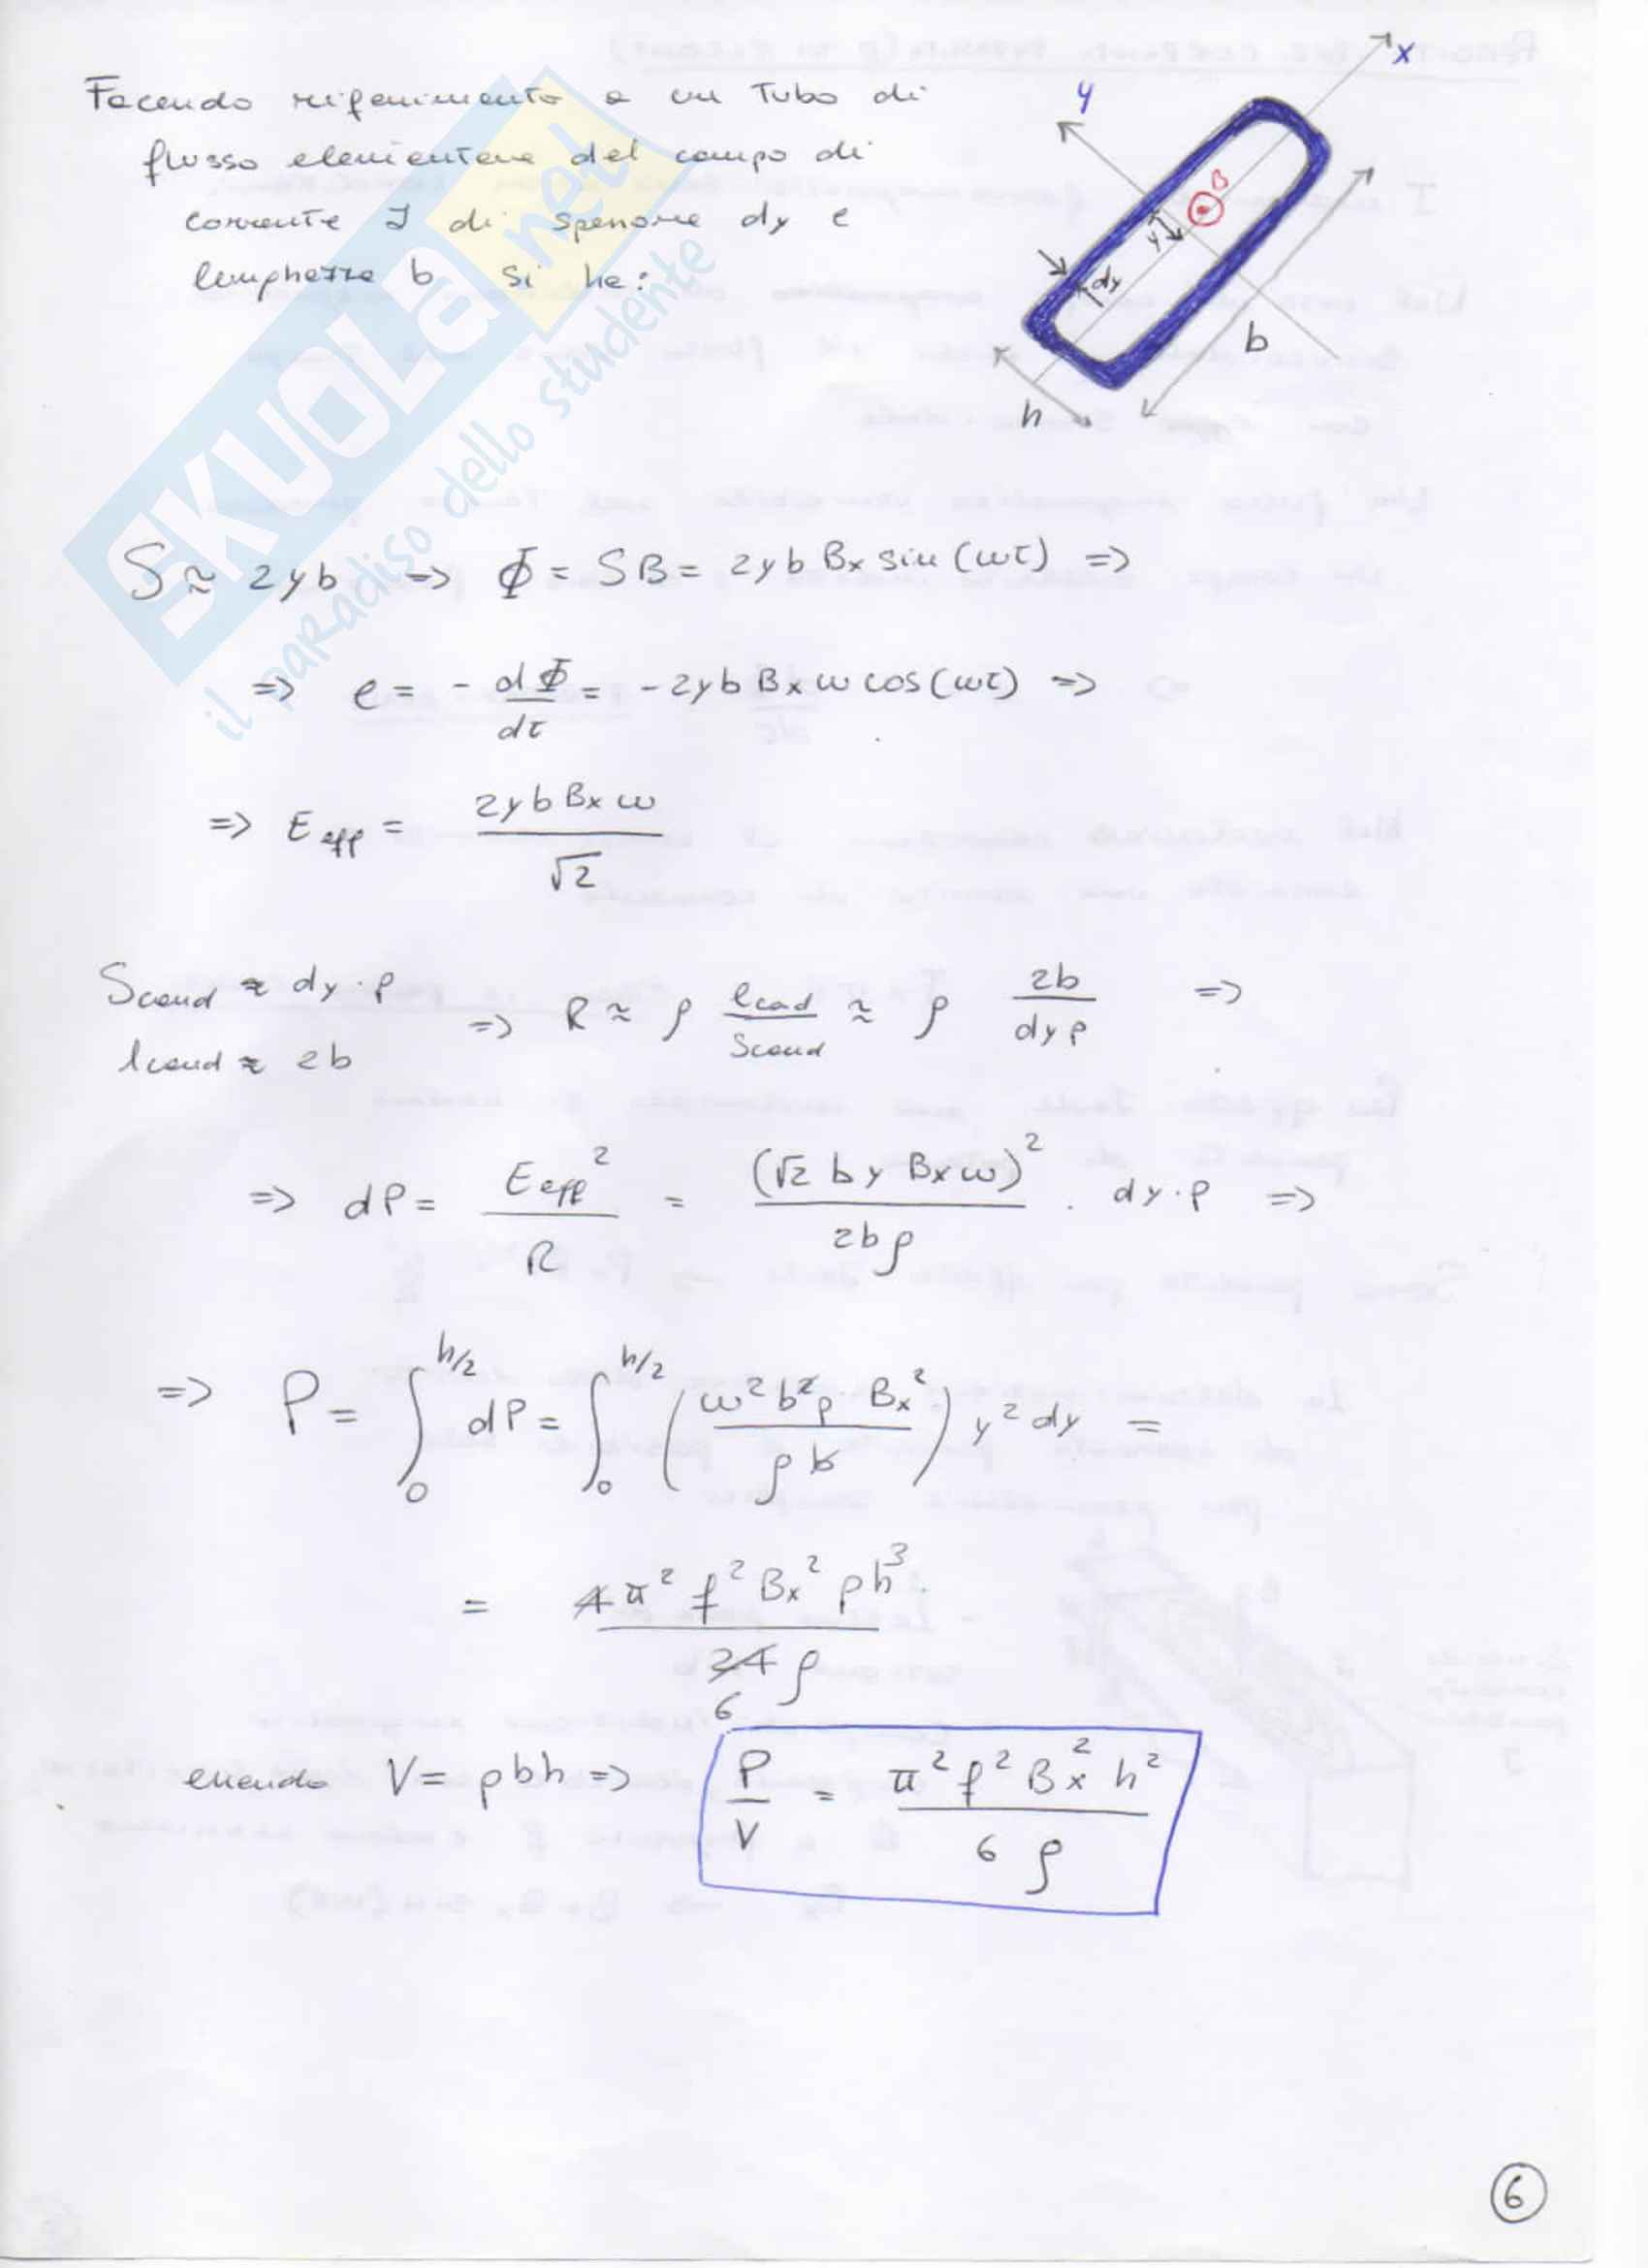 Facendo riferimento a un tubo di
flusso elementare del campo di
corrente J di spessore dy e
lunghezza b si ha:
x
y
B
y
dy
b
h
SKUOLA.net
il paradiso dello studente
S ≈ 2yb => Φ = SB = 2yb Bx sin(ωτ) =>
=> e = - dΦ/dτ = -2yb Bx ω cos(ωτ) =>
=> Eeff = 2yb Bx ω / √2
Scond ≈ dy·p
lcond ≈ 2b
=> R ≈ ρ lcond/Scond ≈ ρ 2b/dy p =>
=> dP = Eeff²/R = (√2 b y Bx ω)²/2bρ · dy·p =>
=> P = ∫₀^h/2 dP = ∫₀^h/2 (ω² b² p Bx² / ρ b) y² dy =
= 4π² f² Bx² p h³ / 24 ρ
6
essendo V = pbh => P/V = π² f² Bx² h² / 6 ρ
6